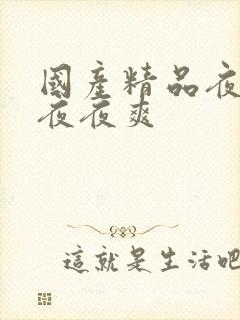 國產精品夜
夜夜爽
這就是生活吧